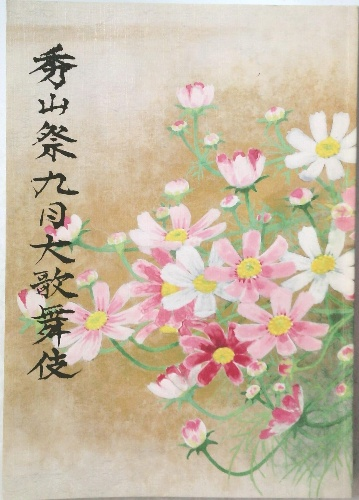 秀山祭九月大歌舞伎